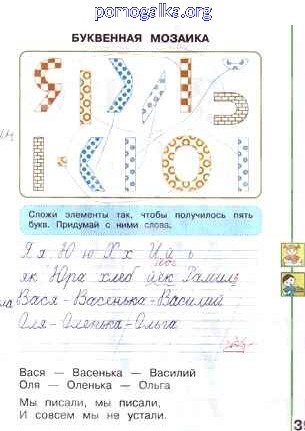 pomogalka.org
БУКВЕННАЯ МОЗАИКА
Сложи элементы так, чтобы получилось пять
букв. Придумай с ними слова.
Я я Ю ю Х х Й й ь
як Юра хлеб
Вася - Васенька - Василий
Оля - Оленька - Ольга
Вася — Васенька — Василий
Оля — Оленька — Ольга
Мы писали, мы писали,
И совсем мы не устали.